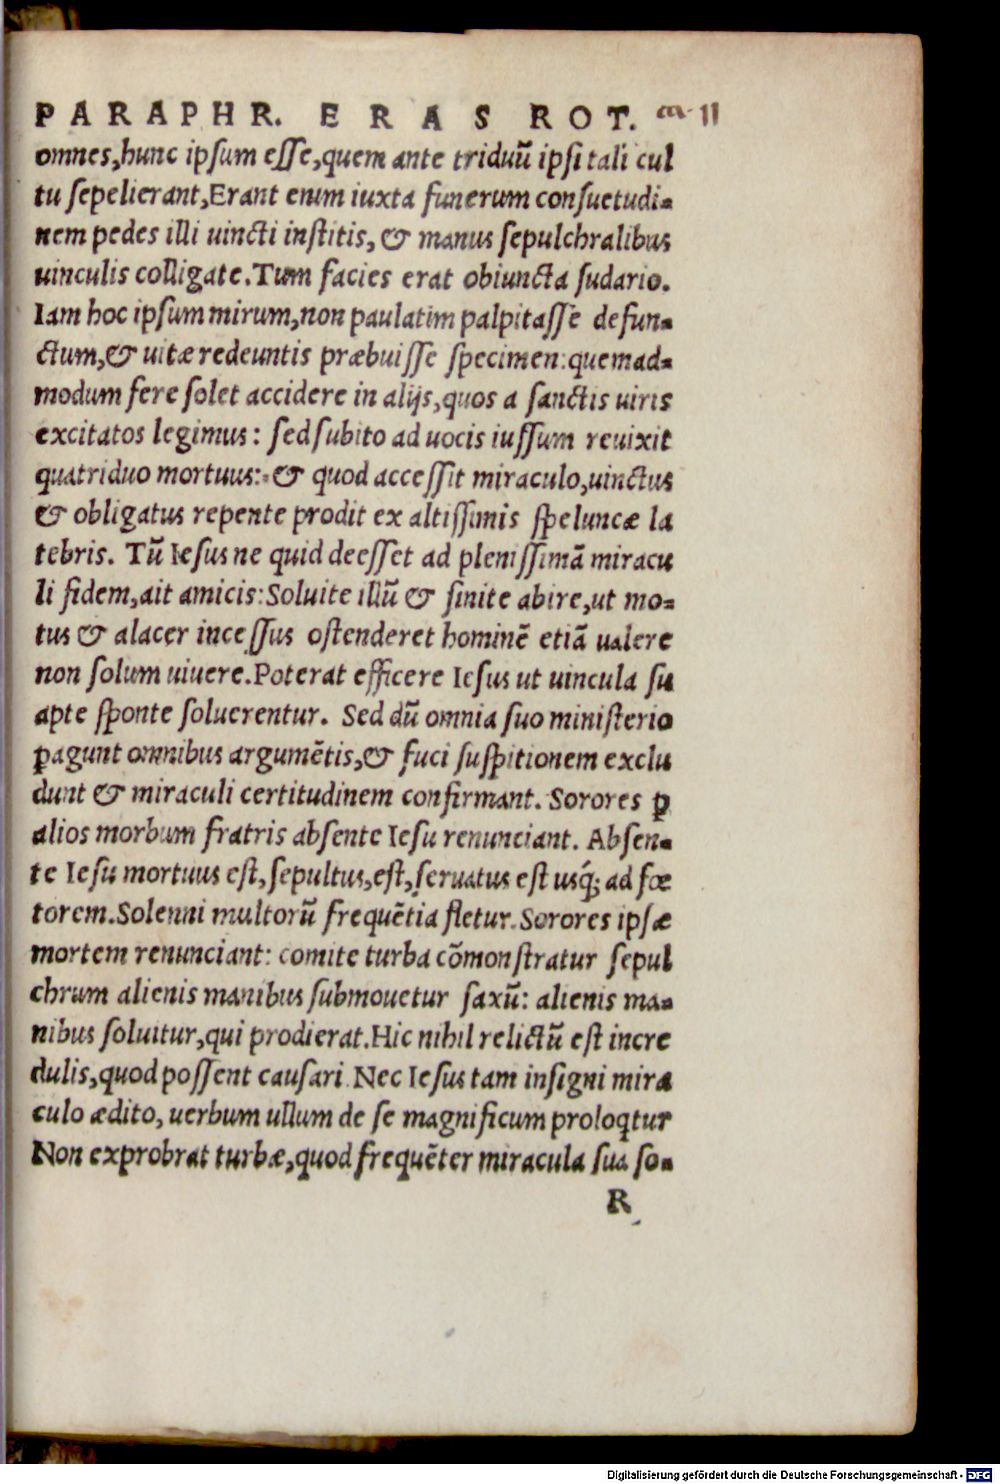 PARAPHR. ERAS ROT.
omnes,hunc ipsum esse,quem ante triduū ipsi tali cul
tu sepelierant,Erant enim iuxta funerum consuetudi-
nem pedes illi uincti institis, & manus sepulchralibus
uinculis colligate.Tum facies erat obiuncta sudario.
Iam hoc ipsum mirum,non paulatim palpitasse defun-
ctum,& uitæ redeuntis præbuisse specimen:quemad-
modum fere solet accidere in alijs,quos a sanctis uiris
excitatos legimus: sed subito ad uocis iussum reuixit
quatriduo mortuus: & quod accessit miraculo,uinctus
& obligatus repente prodit ex altissimis speluncæ la
tebris. Tū Iesus ne quid deesset ad plenissimā miracu
li fidem,ait amicis:Soluite illū & sinite abire,ut mo-
tus & alacer incessus ostenderet hominē etiā ualere
non solum uiuere.Poterat efficere Iesus ut uincula su
apte sponte soluerentur. Sed dū omnia suo ministerio
ꝑagunt omnibus argumētis,& fuci suspitionem exclu
dunt & miraculi certitudinem confirmant. Sorores ꝑ
alios morbum fratris absente Iesu renunciant. Absen-
te Iesu mortuus est,sepultus,est,seruatus est usq́; ad fœ
torem.Solenni multorū frequētia fletur.Sorores ipsæ
mortem renunciant: comite turba cōmonstratur sepul
chrum alienis manibus submouetur saxū: alienis ma-
nibus soluitur,qui prodierat.Hic nihil relictū est incre
dulis,quod possent causari.Nec Iesus tam insigni mira
culo ædito, uerbum ullum de se magnificum proloqtur
Non exprobrat turbæ,quod frequēter miracula sua so-
R
Digitalisierung gefördert durch die Deutsche Forschungsgemeinschaft - DFG